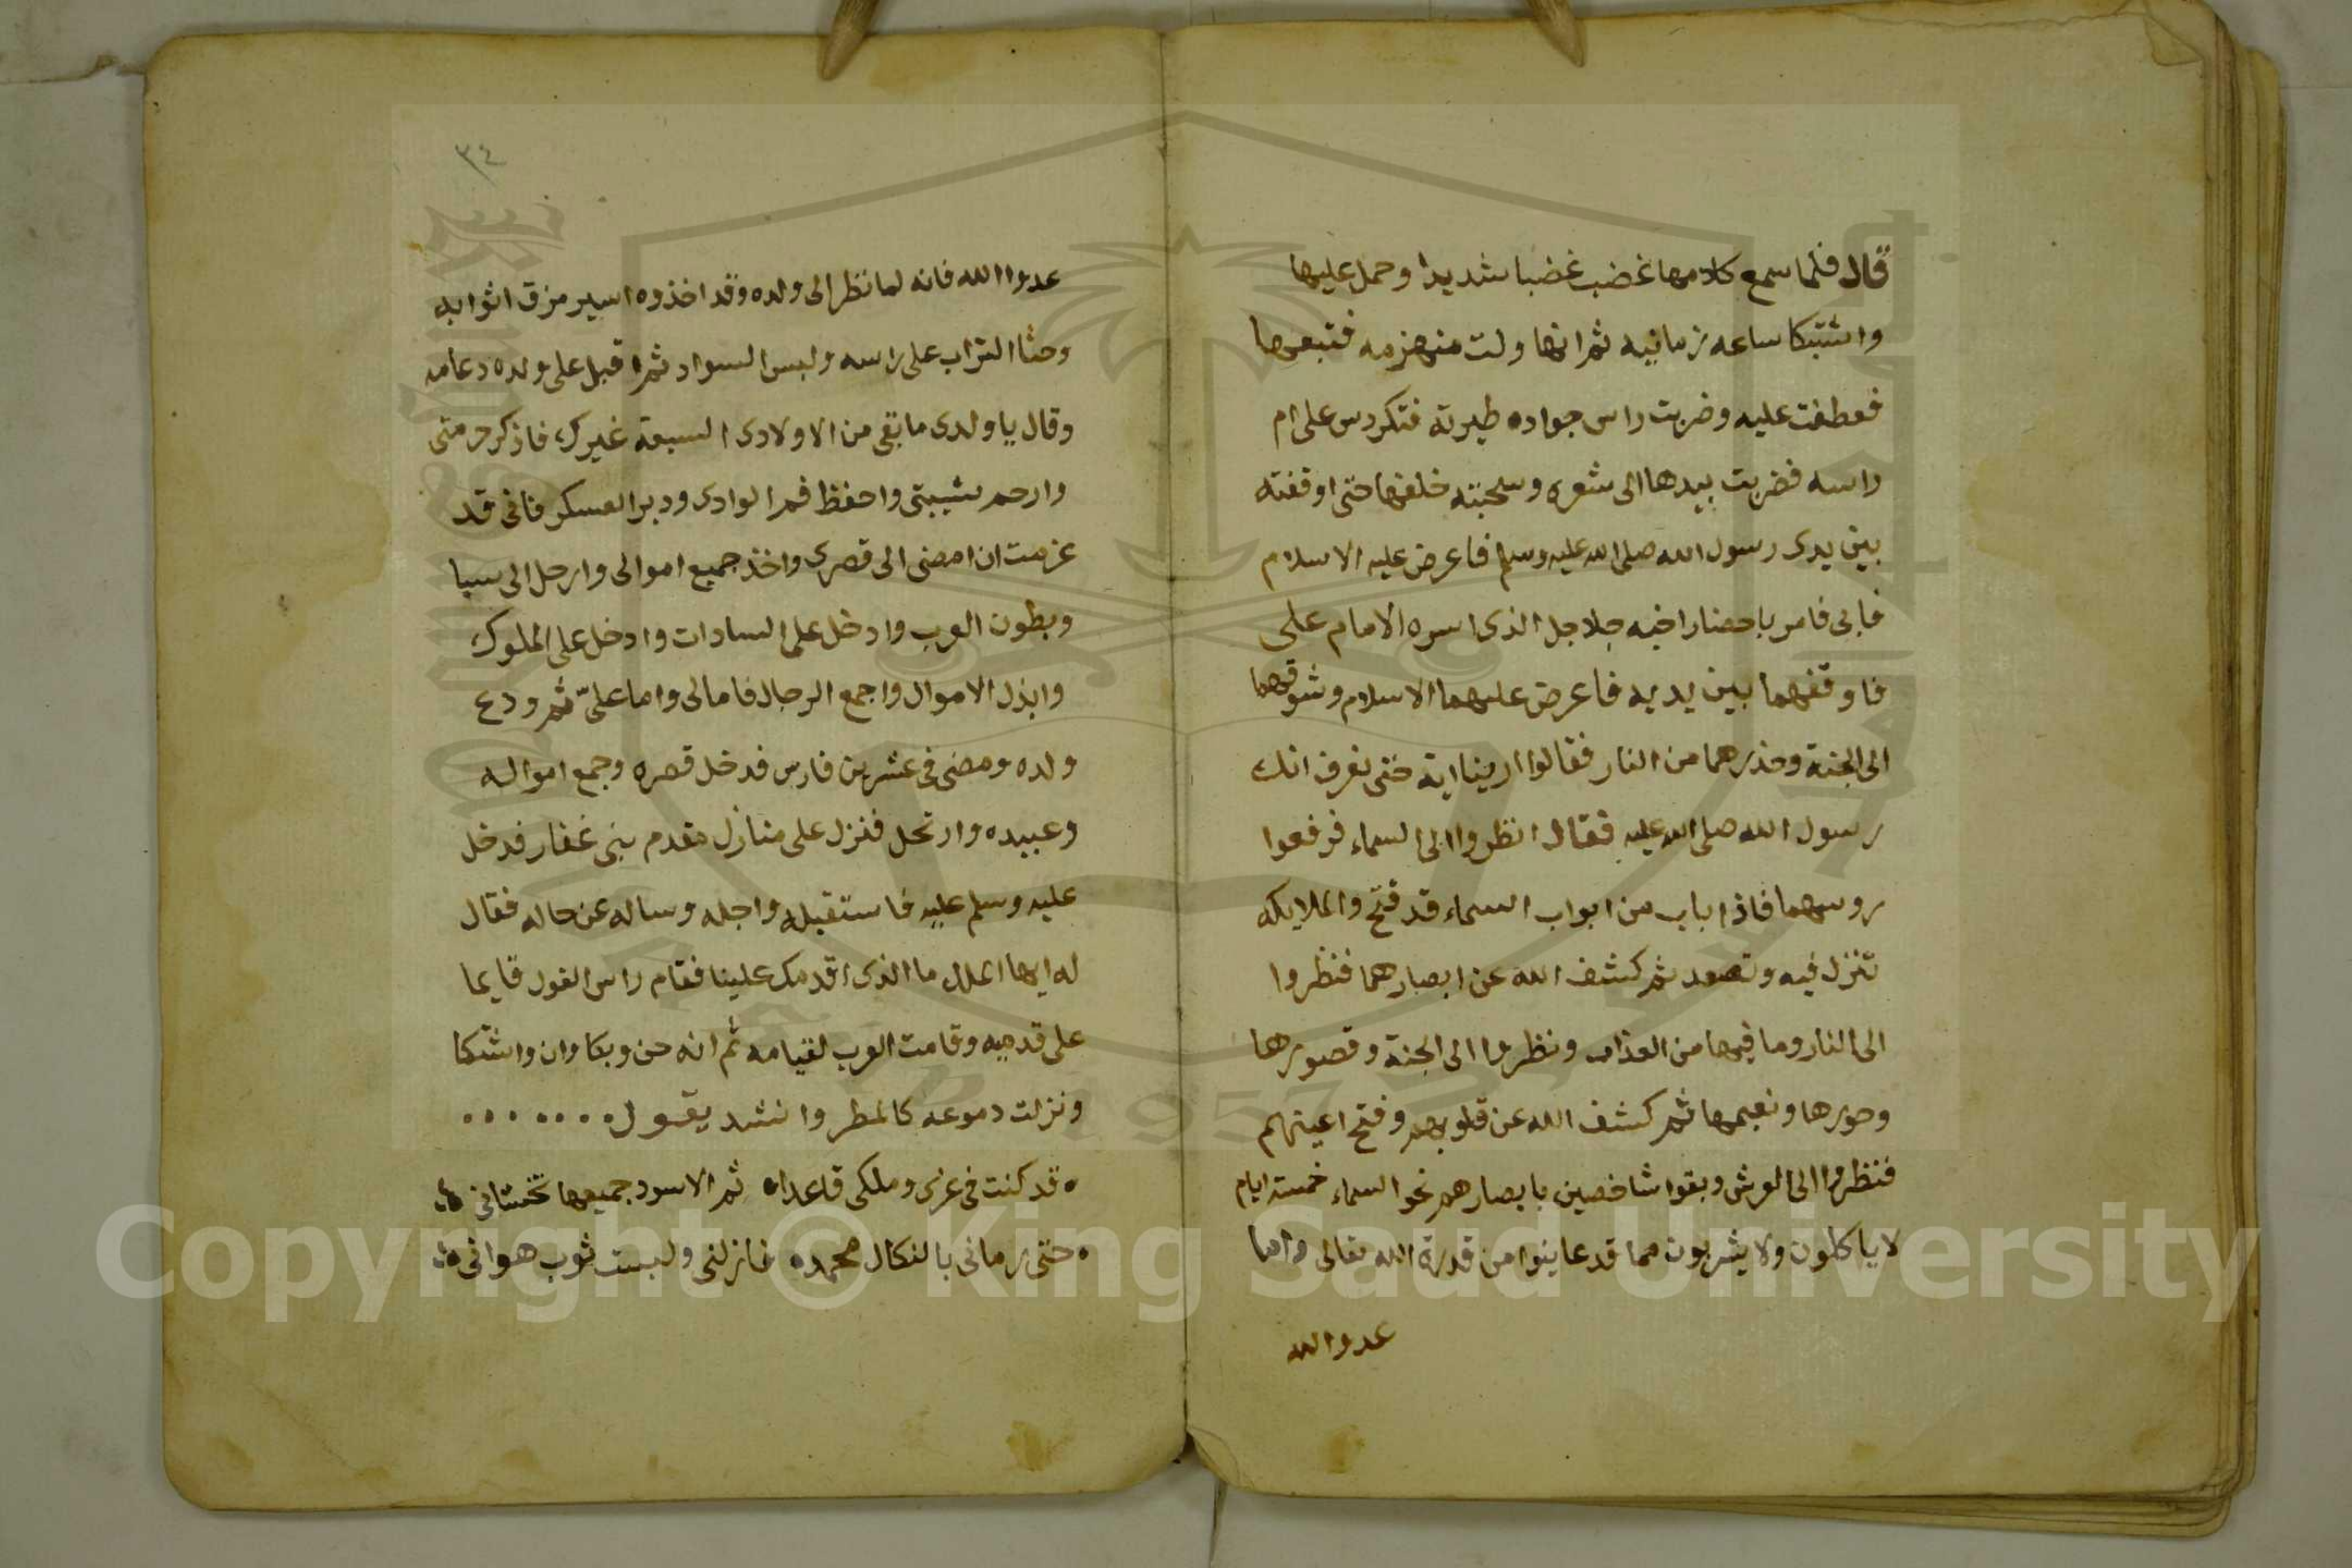 قال فلما سمع كلامها غضب غضبا شديدا وحمل عليها
واشتبكا ساعه زمانيه ثم انها ولت منهزمه فتبعها
فعطفت عليه وضربت راس جواده طيرته فتكردس على ام
راسه فضربت بيدها الى شعره وسحبته خلفها حتى اوقفته
بين يدى رسول الله صلى الله عليه وسلم فاعرض عليه الاسلام
فابى فامر باحضار اخيه جلاجل الذى اسره الامام على
فاوقفهما بين يديه فاعرض عليهما الاسلام وشوقهما
الى الجنة وحذرهما من النار فقالوا ارينا اية حتى نعرف انك
رسول الله صلى الله عليه فقال انظروا الى السماء فرفعوا
روسهما فاذا باب من ابواب السماء قد فتح والملايكه
تنزل فيه وتصعد ثم كشف الله عن ابصارهما فنظروا
الى النار وما فيها من العذاب ونظروا الى الجنة وقصورها
وحورها ونعيمها ثم كشف الله عن قلوبهم وفتح اعينهم
فنظروا الى العرش وبقوا شاخصين بابصارهم نحو السماء خمسة ايام
لا ياكلون ولا يشربون مما قد عاينوا من قدرة الله تعالى واما
عدوا الله
٣٤
عدوا الله فانه لما نظر الى ولده وقد اخذوه اسير مزق اثوابه
وحثا التراب على راسه ولبس السواد ثم اقبل على ولده دعامه
وقال يا ولدى ما بقى من الاولادى السبعة غيرك فاذكر حرمتى
وارحم شيبتى واحفظ فم الوادى ودبر العسكر فانى قد
عزمت ان امضى الى قصرى واخذ جميع اموالى وارحل الى سبا
وبطون العرب وادخل على السادات وادخل على الملوك
وابذل الاموال واجمع الرجال فاما لى واما علىّ ثم ودع
ولده ومضى فى عشرين فارس فدخل قصره وجمع امواله
وعبيده وارتحل فنزل على منازل مقدم بنى غفار فدخل
عليه وسلم عليه فاستقبله واجله وساله عن حاله فقال
له ايها الملك ما الذى اقدمك علينا فقام راس الغول قايما
على قدميه وقامت العرب لقيامه ثم انه حن وبكا وان واشتكا
ونزلت دموعه كالمطر وانشد يقول
قد كنت فى عزى وملكى قاعدا ثم الاسود جميعها تخشانى
حتى رمانى بالنكال محمد فازلنى ولبست ثوب هوانى
Copyright © King Saud University
1957